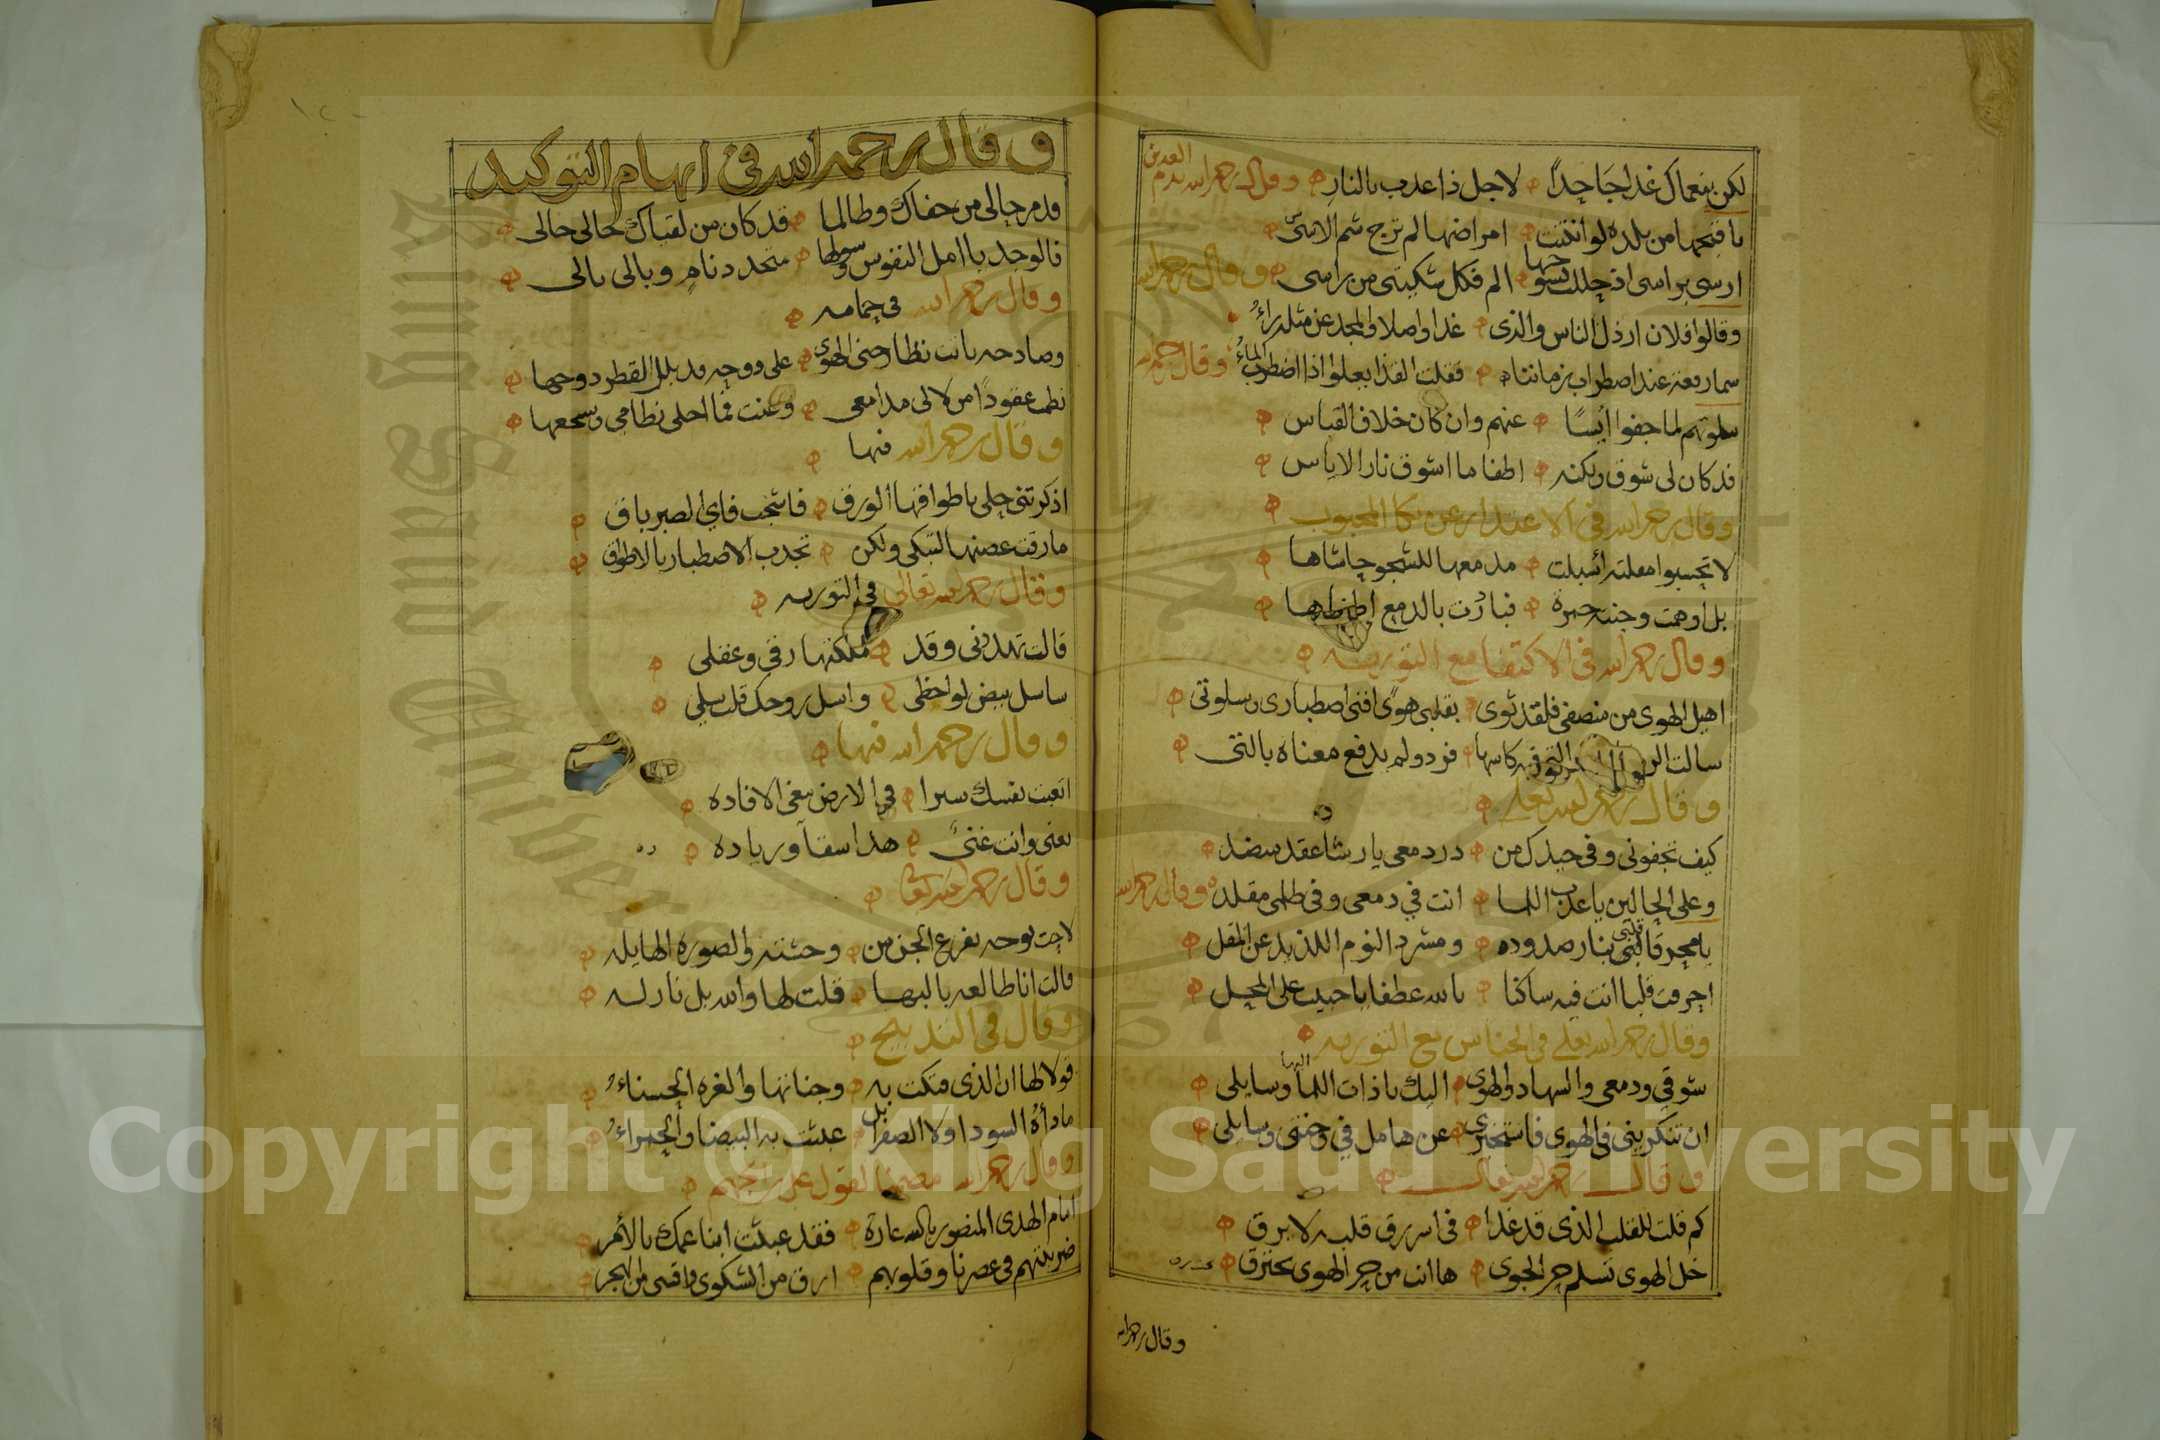 لكن بنعماك غدا جاحدًا لاجل ذا عذب بالنار وقال رحمه الله يذم العدين
يا قبحها من بلده لو انتنت امراضها لم ترج شم الاسى
ارسى براسى اذ حللت بسوحها الم فكل شكيتى من راسى وقال رحمه الله
وقالوا فلان ارذل الناس والذى غدا واصلا والمجد عن مثله راءٍ
سما رفعة عند اضطراب زماننا فقلت القذا يعلوا اذا اضطرب الماءُ وقال رحمه الله
سلوتهم لما جفوا ايسًا عنهم وان كان خلاف القياس
قد كان لى شوق ولكنه اطفا ما اشوق نار الاياس
وقال رحمه الله فى الاعتذار عن بكا المحبوب
لا تحسبوا مقلته اسبلت مدمعها للشجو حاشاها
بل اوهمت وجنته حمرة فبادرت بالدمع
وقال رحمه الله فى الاكتفا مع التوريه
اهيل الهوى من منصفى فلقد ثوى بقلبى هوًى افنى اصطبارى وسلوتى
سالت كاسها فرد ولم يدفع معناه بالتى
وقال رحمه الله تعالى
كيف تجفونى وفى جيدك من در دمعى يا رشا عقد منضد
وعلى الحالين يا عذب اللما انت فى دمعى وفى ظلمى مقلد وقال رحمه الله
يا محرقا قلبى بنار صدوده ومشرد النوم اللذيذ عن المقل
احرقت قلبا انت فيه ساكنا بالله عطفا يا حبيب على المحل
وقال رحمه الله تعالى فى الجناس مع التوريه
شوقى ودمعى والسهاد والهوى اليك يا ذات اللما وسايلى
ان تنكرينى فى الهوى فاستخبرى عن هامل فى وجنتى وسايلى
وقال رحمه الله تعالى
كم قلت للقلب الذى قد غدا فى اسر رق قلبه لا يرق
خل الهوى تسلم حر الجوى ها انت من حر الهوى تحترق
وقال رحمه الله
وقال رحمه الله فى ايهام التوكيد
قد مر حالى من جفاك وطالما قد كان من لقياك حالى حالى
فالوجد يا امل النفوس وسولها متجدد نامٍ وبالى بالى
وقال رحمه الله فى حمامه
وصادحه باتت تطارحنى الهوى على دوحه قد بلل القطر دوحها
نظمت عقودًا من لالى مدامعى وغنت فما احلى نظامى وسجعها
وقال رحمه الله فيها
اذكرتنى حلى باطواقها الورق فاشجت فاى الصبر باق
ما رقت غصنها لتبكى ولكن تجذب الاصطبار بالاطواق
وقال رحمه الله تعالى فى التوريه
قالت تهددنى وقد ملكتها رقى وعقلى
ساسل بيض لواحظى واسل روحك قلت سلى
وقال رحمه الله فيها
اتعبت نفسك سيرا فى الارض تبغى الافاده
تعنى وانت غنىٌ هذا سفاً وزياده
وقال رحمه الله تعالى
لاحت بوجه يفزع الجن من وحشته والصورة الهايله
قالت انا طالعه بالبها قلت لها والله بل نازله
وقال فى التدبيج
قولا لها ان الذى فتكت به وجناتها والغره الحسناءُ
ما دأهُ السودا ولا الصفرا بل عبثت به البيضا والحمراءُ
وقال رحمه الله مضمنا لقول على بن الجهم
امام الهدى المنصور بالله غارة فقد عبثت ابناءُ عمك بالأمر
ضريبتهم فى عصرنا وقلوبهم ارق من الشكوى واقسى من الهجر
Copyright © King Saud University
King Saud University
1957